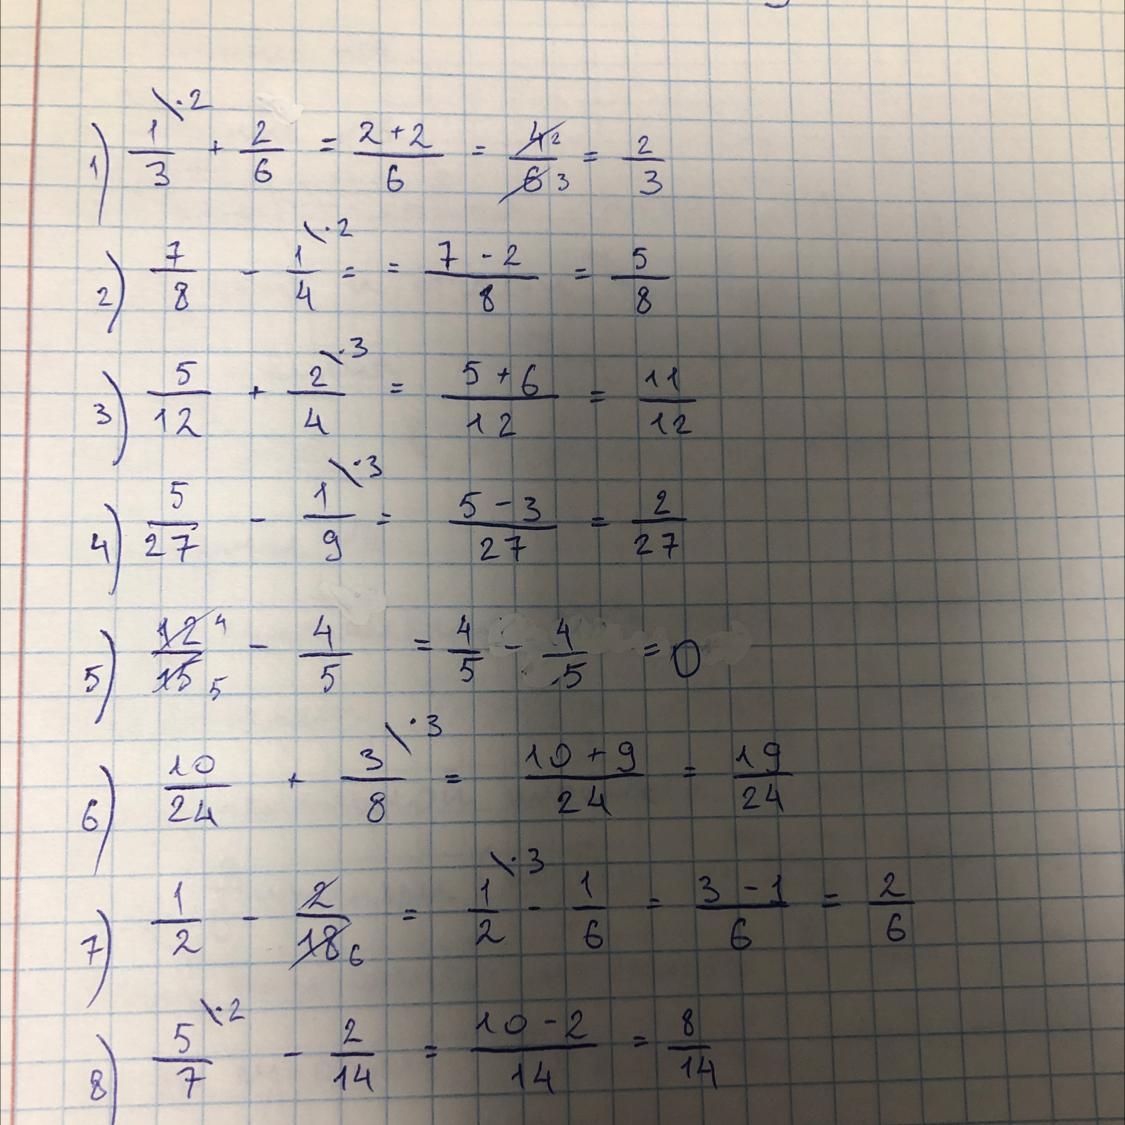 1) 1/3 \·2 + 2/6 = 2+2/6 = 4 2/6 3 = 2/3
2) 7/8 - 1/4 \·2 = = 7-2/8 = 5/8
3) 5/12 + 2/4 \·3 = 5+6/12 = 11/12
4) 5/27 - 1/9 \·3 = 5-3/27 = 2/27
5) 12 4/15 5 - 4/5 = 4/5 - 4/5 = 0
6) 10/24 + 3/8 \·3 = 10+9/24 = 19/24
7) 1/2 - 2/18 6 = 1/2 \·3 - 1/6 = 3-1/6 = 2/6
8) 5/7 \·2 - 2/14 = 10-2/14 = 8/14